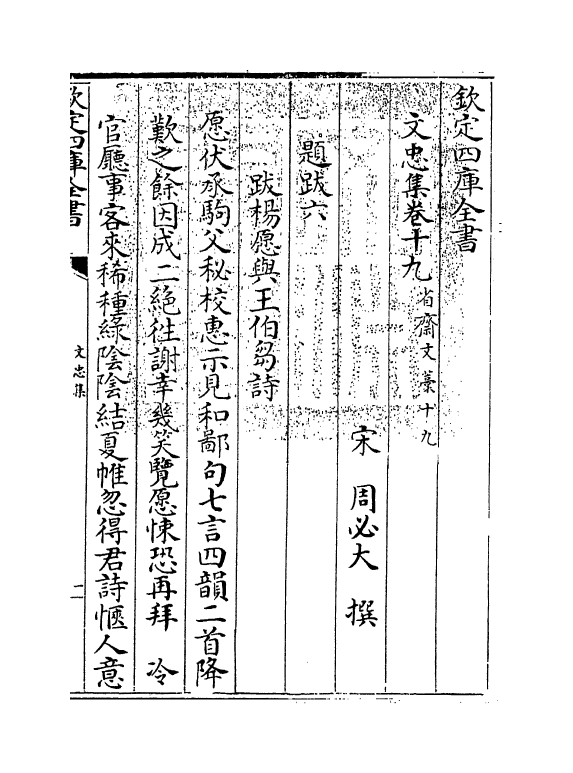 欽定四庫全書
文忠集卷十九省齋文藁十九
宋周必大撰
題跋六
跋楊愿與王伯芻詩
愿伏承駒父秘校惠示見和鄙句七言四韻二首降
歎之餘因成二絶徃謝幸幾笑覽愿悚恐再拜　冷
官廳事客來稀種緑陰陰結夏帷忽得君詩愜人意
欽定四庫全書
文忠集
二